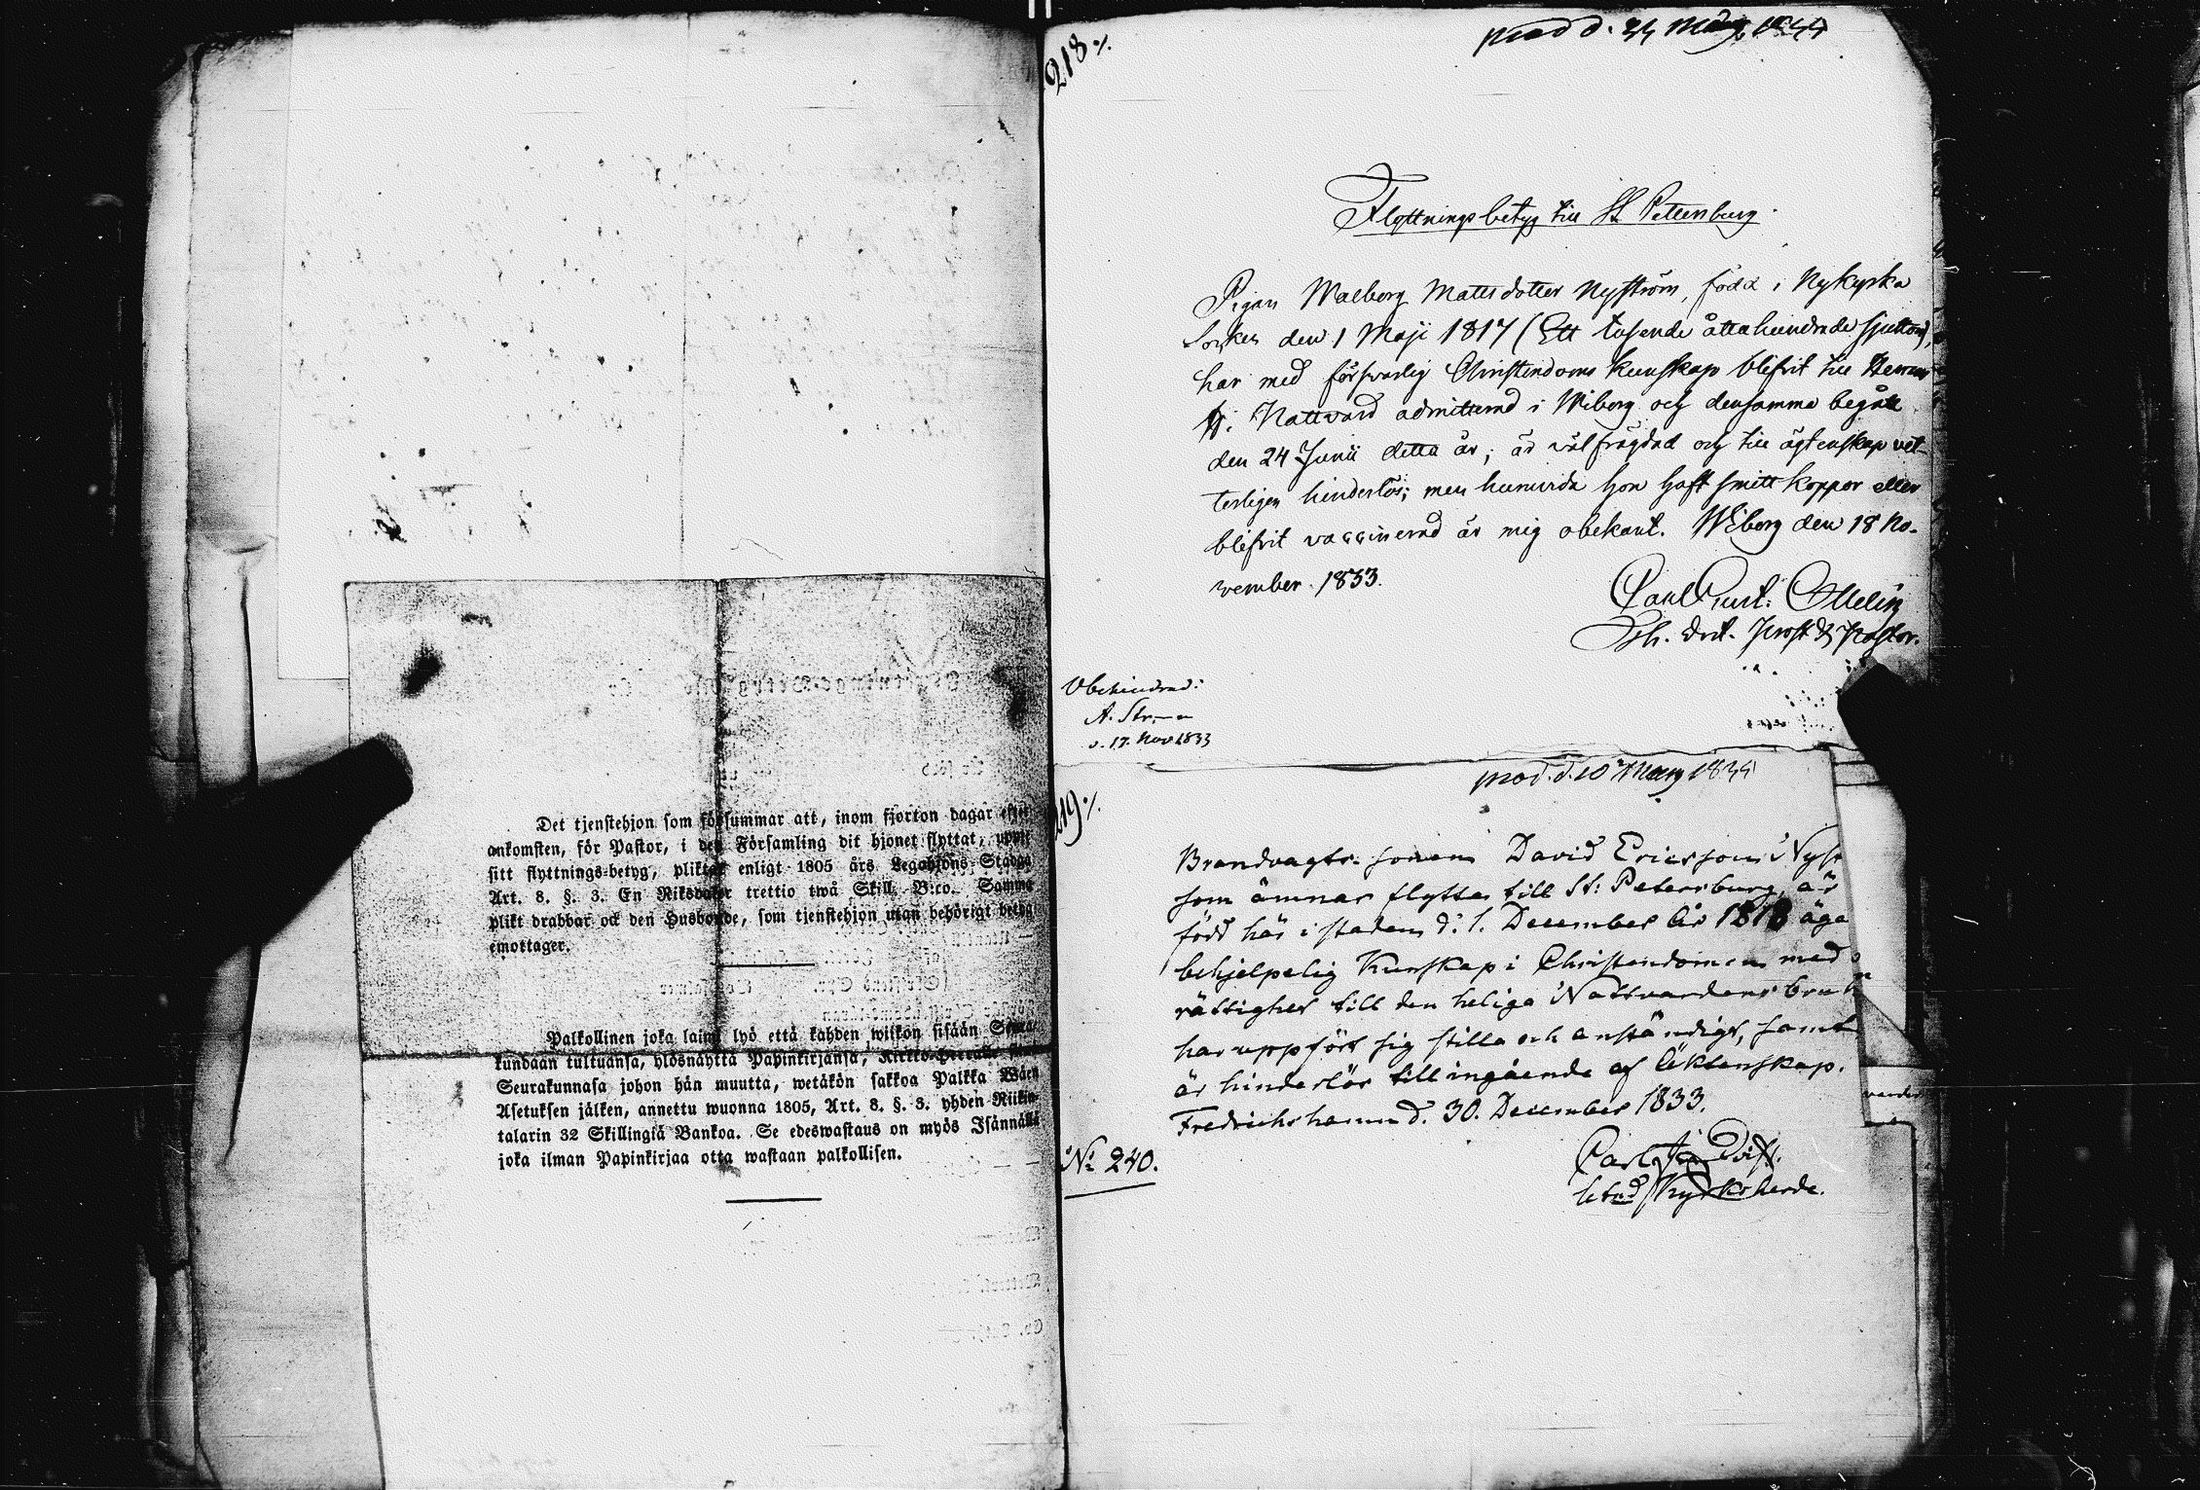 Det tjenstehjon som försummar att, inom fjorton dagar efter
ankomsten, för Pastor, i den Församling dit hjonet flyttat, uppte
sitt flyttnings-betyg, pliktar enligt 1805 års Legohjons Stadga
Art. 8. §. 3. En Riksdaler trettio twå Skill. B:co. Samma
plikt drabbar ock den Husbonde, som tjenstehjon utan behörigt betyg
emottager.
Palkollinen joka laimi lyö että kahden wiikon sisään Seura-
kundaan tultuansa, ylösnäyttä Papinkirjansa,
Seurakunnasa johon hän muutta, wetäkön sakkoa Palkka Wäen
Asetuksen jälken, annettu wuonna 1805, Art. 8. §. 3. yhden Riikin-
talarin 32 Skillingiä Bankoa. Se edeswastaus on myös Isännällä
joka ilman Papinkirjaa otta wastaan palkollisen.
218 ⁒
prod d. 1834
Flyttningsbetyg till St Petersburg.
Pigan Walborg Mattsdotter Nyström, född i Nykyrka
Socken den 1 Maji 1817 (Ett tusende åttahundrade sjutton),
har med försvarlig Christendoms kunskap blifvit till Herrans
H: Nattvard admitterad i Wiborg och densamma begått
den 24 Junii detta år; är välfrägdad och till ägtenskap vet-
terligen hinderlös; men huruvida hon haft smittkoppor eller
blifvit vaccinerad är mig obekant. Wiborg den 18 No-
vember 1833.
Carl Gust: Ottelin
Th. Doct. Prost & Pastor.
Obehindrad:
A. Str
d. 17. Nov 1833
219 ⁒
prod. d. 10 Mars 1834
Brandvagts-sonen David Ericsson
som ämnar flytta till St: Petersburg, är
född här i staden d: 1. December År 1818 äga
behjelpelig Kunskap i Christendomen med
rättighet till den heliga Nattvardens bruk
har uppfört sig stilla och anständigt, samt
är hinderlös till ingående af Äktenskap.
Fredrichshamn d. 30. December 1833.
Carl
Kyrkoherde.
No: 240.